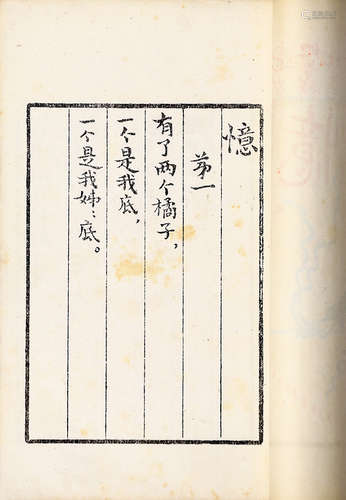 憶
第一
有了两个橘子，
一个是我底，
一个是我姊：底。